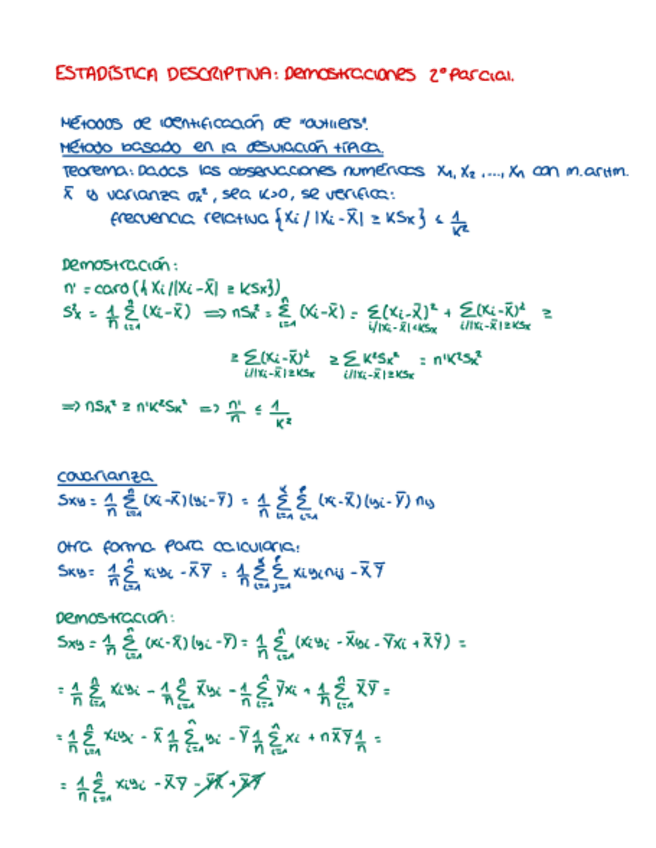 ESTADÍSTICA DESCRIPTIVA: Demostraciones 2º Parcial.
Métodos de identificación de "outliers".
Método basado en la desviación típica.
Teorema: Dadas las observaciones numéricas x₁, x₂, ..., xₙ con m.aritm.
x̄ y varianza σₓ², sea K>0, se verifica:
frecuencia relativa {xᵢ / |xᵢ - x̄| ≥ KSₓ} ≤ 1/K²
Demostración:
n' = card ({xᵢ / |xᵢ - x̄| ≥ KSₓ})
S²ₓ = 1/n Σⁿᵢ₌₁ (xᵢ - x̄) ⇒ nSₓ² = Σⁿᵢ₌₁ (xᵢ - x̄) = Σ_{i/|xᵢ-x̄|<KSₓ} (xᵢ - x̄)² + Σ_{i/|xᵢ-x̄|≥KSₓ} (xᵢ - x̄)² ≥
≥ Σ_{i/|xᵢ-x̄|≥KSₓ} (xᵢ - x̄)² ≥ Σ_{i/|xᵢ-x̄|≥KSₓ} K²Sₓ² = n'K²Sₓ²
⇒ nSₓ² ≥ n'K²Sₓ² ⇒ n'/n ≤ 1/K²
Covarianza
Sxy = 1/n Σⁿᵢ₌₁ (xᵢ - x̄)(yᵢ - ȳ) = 1/n Σ Σ (xᵢ - x̄)(yᵢ - ȳ) nᵢⱼ
Otra forma para calcularla:
Sxy = 1/n Σⁿᵢ₌₁ xᵢyᵢ - x̄ȳ = 1/n Σᵢ₌₁ Σⱼ₌₁ xᵢyᵢnᵢⱼ - x̄ȳ
Demostración:
Sxy = 1/n Σⁿᵢ₌₁ (xᵢ - x̄)(yᵢ - ȳ) = 1/n Σⁿᵢ₌₁ (xᵢyᵢ - x̄yᵢ - ȳxᵢ + x̄ȳ) =
= 1/n Σⁿᵢ₌₁ xᵢyᵢ - 1/n Σⁿᵢ₌₁ x̄yᵢ - 1/n Σⁿᵢ₌₁ ȳxᵢ + 1/n Σⁿᵢ₌₁ x̄ȳ =
= 1/n Σⁿᵢ₌₁ xᵢyᵢ - x̄ 1/n Σⁿᵢ₌₁ yᵢ - ȳ 1/n Σⁿᵢ₌₁ xᵢ + n x̄ȳ 1/n =
= 1/n Σⁿᵢ₌₁ xᵢyᵢ - x̄ȳ - ȳx̄ + x̄ȳ